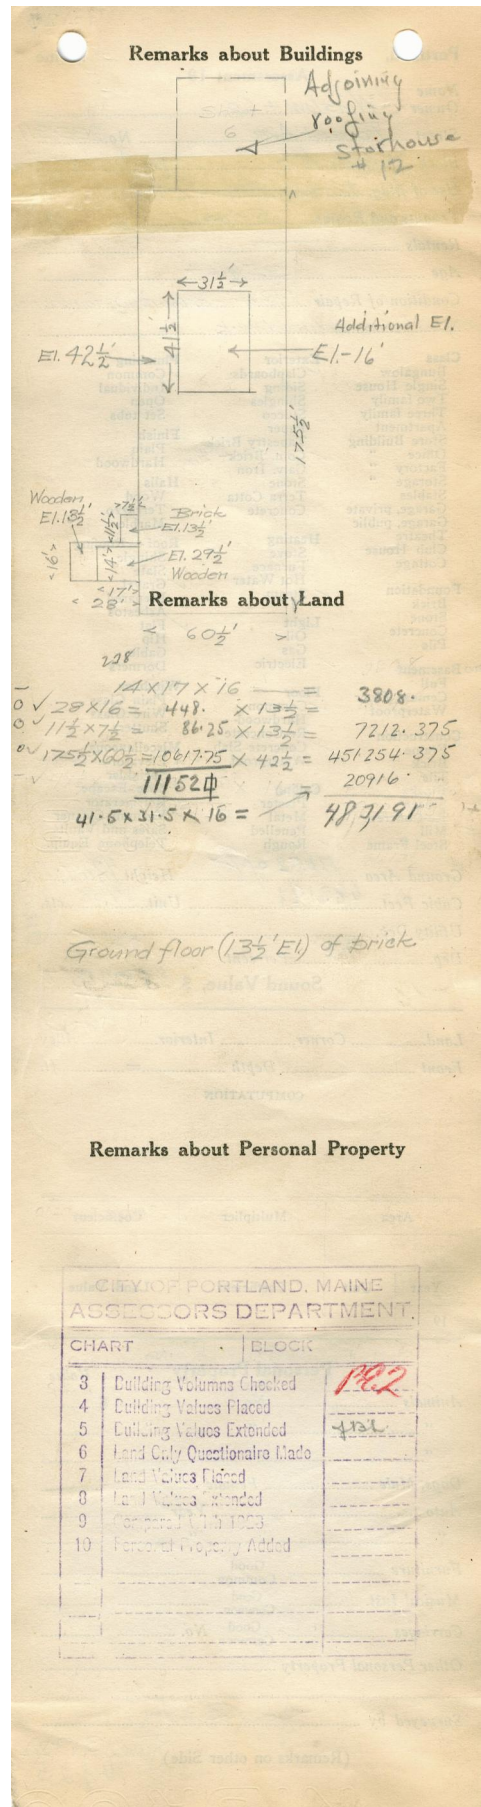 Remarks about Buildings
Adjoining
roofing
Storhouse
# 12
6
31½'
41½'
Additional El.
El. 42½'
El.-16'
175½'
Wooden
El. 13½'
7½'
11½'
Brick
El. 13½'
16'
14'
El. 29½'
Wooden
17'
28'
Remarks about Land
60½'
228
14 x 17 x 16 = 3808.
0 ✓ 28 x 16 = 448. x 13½ =
0 ✓ 11½ x 7½ = 86.25 x 13½ = 7212.375
0 ✓ 175½ x 60½ = 10617.75 x 42½ = 451254.375
11152 20916.
41.5 x 31.5 x 16 = 483191
Ground floor (13½' El.) of brick.
Remarks about Personal Property
CITY OF PORTLAND, MAINE
ASSESSORS DEPARTMENT.
CHART BLOCK
3 Building Volumns Checked
4 Building Values Placed
5 Building Values Extended
6 Land Only Questionaire Made
7 Land Values Placed
8 Land Values Extended
9 Compared With 1923
10 Personal Property Added